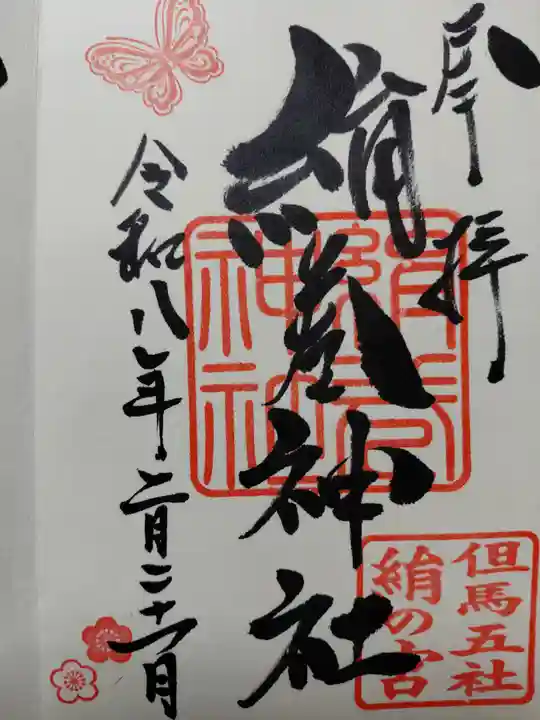 奉拝
絹巻神社
絹巻
神社
令和八年二月二十一日
但馬五社
絹の宮